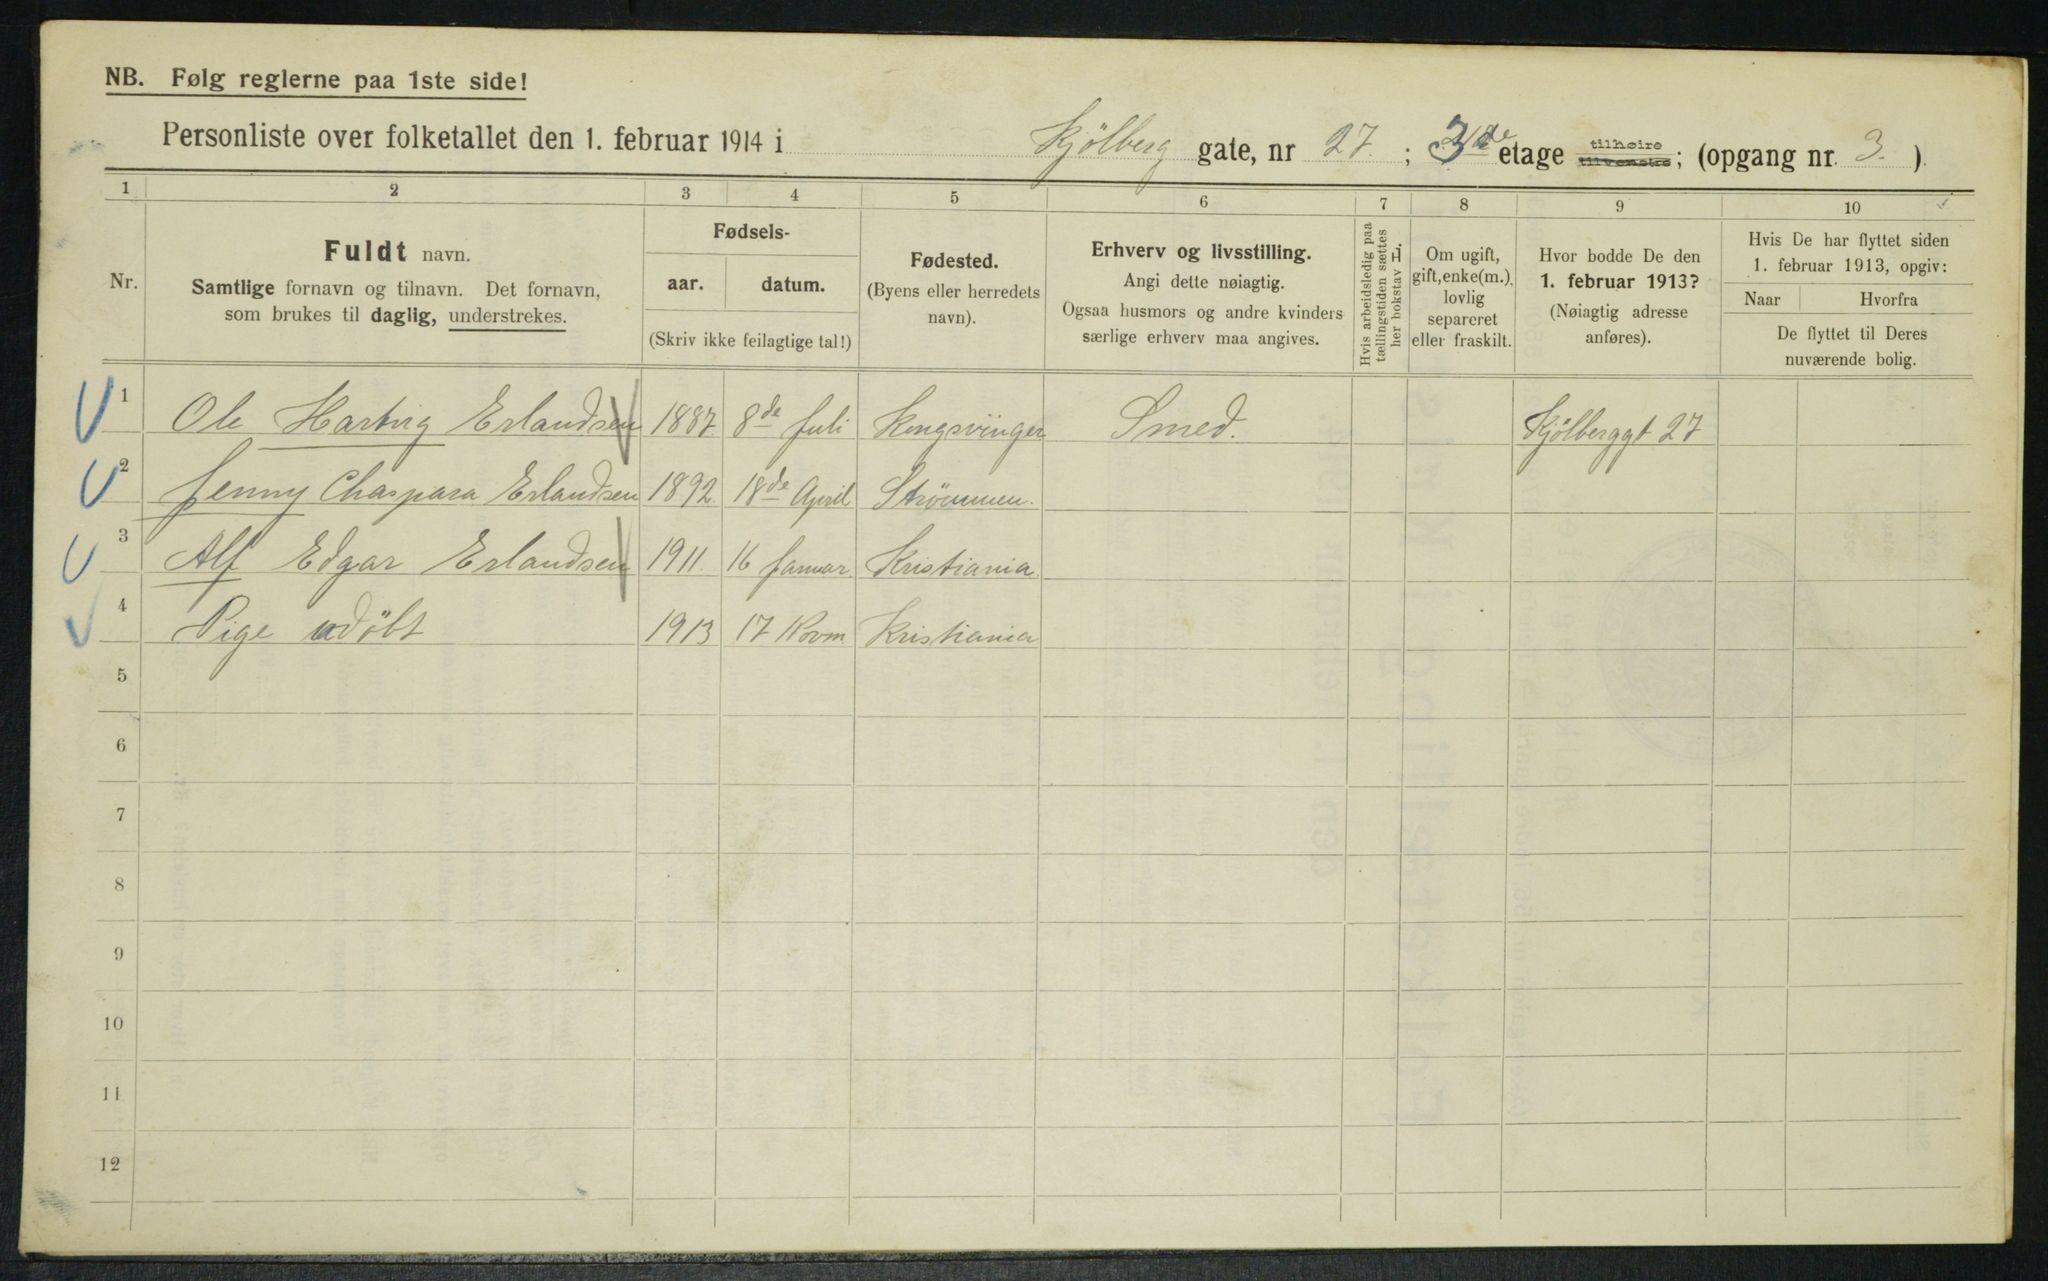 NB. Følg reglerne paa 1ste side!
Personliste over folketallet den 1. februar 1914 i Kjölberg gate, nr 27 ; 3de etage tilhøire tilvenstre; (opgang nr. 3. ).
1 2 3 4 5 6 7 8 9 10
Nr.
Fuldt navn.
Samtlige fornavn og tilnavn. Det fornavn,
som brukes til daglig, understrekes.
Fødsels-
aar. datum.
(Skriv ikke feilagtige tal!)
Fødested.
(Byens eller herredets
navn).
Erhverv og livsstilling.
Angi dette nøiagtig.
Ogsaa husmors og andre kvinders
særlige erhverv maa angives.
Hvis arbeidsledig paa
tællingstiden sættes
her bokstav L.
Om ugift,
gift, enke(m.),
lovlig
separeret
eller fraskilt.
Hvor bodde De den
1. februar 1913?
(Nøiagtig adresse
anføres).
Hvis De har flyttet siden
1. februar 1913, opgiv:
Naar Hvorfra
De flyttet til Deres
nuværende bolig.
1 Ole Hartvig Erlandsen 1887 8de Juli Kongsvinger Smed. Kjölberggt 27
2 Jenny Chaspara Erlandsen 1892 18de April Strömmen.
3 Alf Edgar Erlandsen 1911. 16 Januar. Kristiania.
4 Pige udöbt 1913 17 Novm Kristiania
5
6
7
8
9
10
11
12